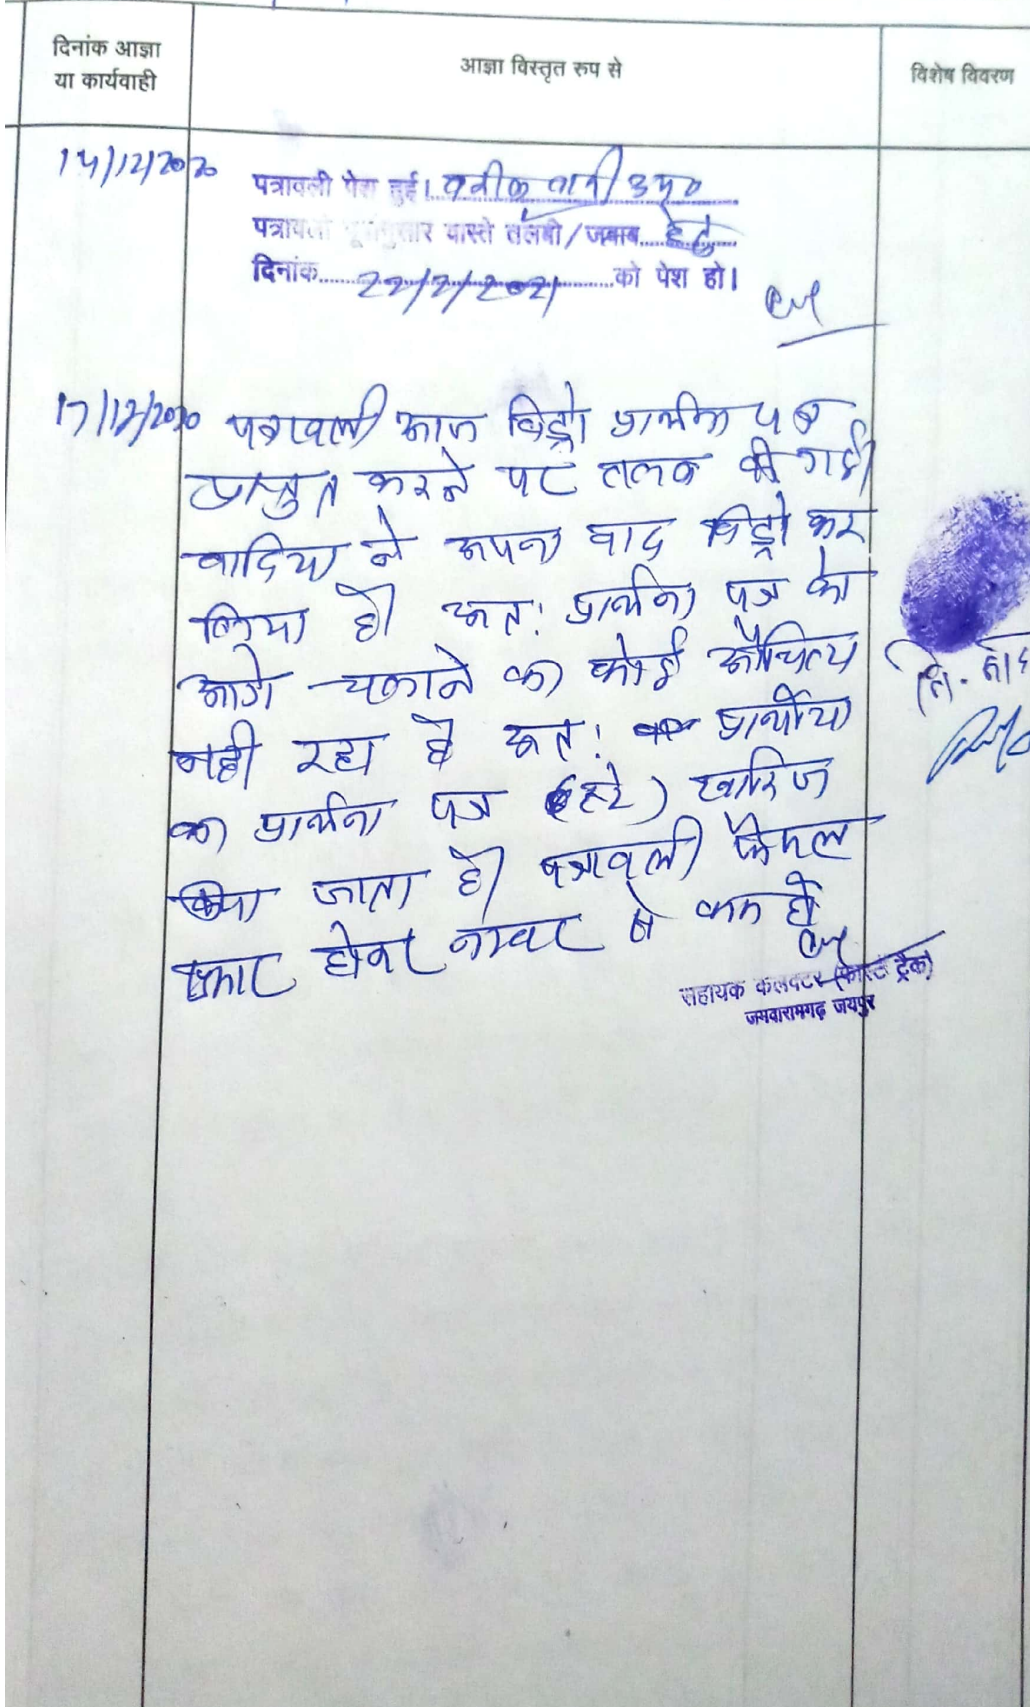 दिनांक आज्ञा
या कार्यवाही
आज्ञा विस्तृत रूप से
विशेष विवरण
14/12/2020
पत्रावली पेश हुई। वकील वादी उप०
पत्रावली पूर्वानुसार वास्ते तलबी/जबाब हेतु
दिनांक 22/2/2021 को पेश हो।
17/12/2020 पत्रावली आज विड्रो प्रार्थना पत्र
प्रस्तुत करने पर तलब की गई।
वादिया ने अपना वाद विड्रो कर
लिया है। अतः प्रार्थना पत्र को
आगे चलाने का कोई औचित्य
नही रहा है अतः प्रार्थीया
का प्रार्थना पत्र (स्टे) खारिज
किया जाता है। पत्रावली फैसल
शुमार होकर नम्बर से कम हो
नि.
सहायक कलक्टर (फास्ट ट्रैक)
जमवारामगढ़ जयपुर